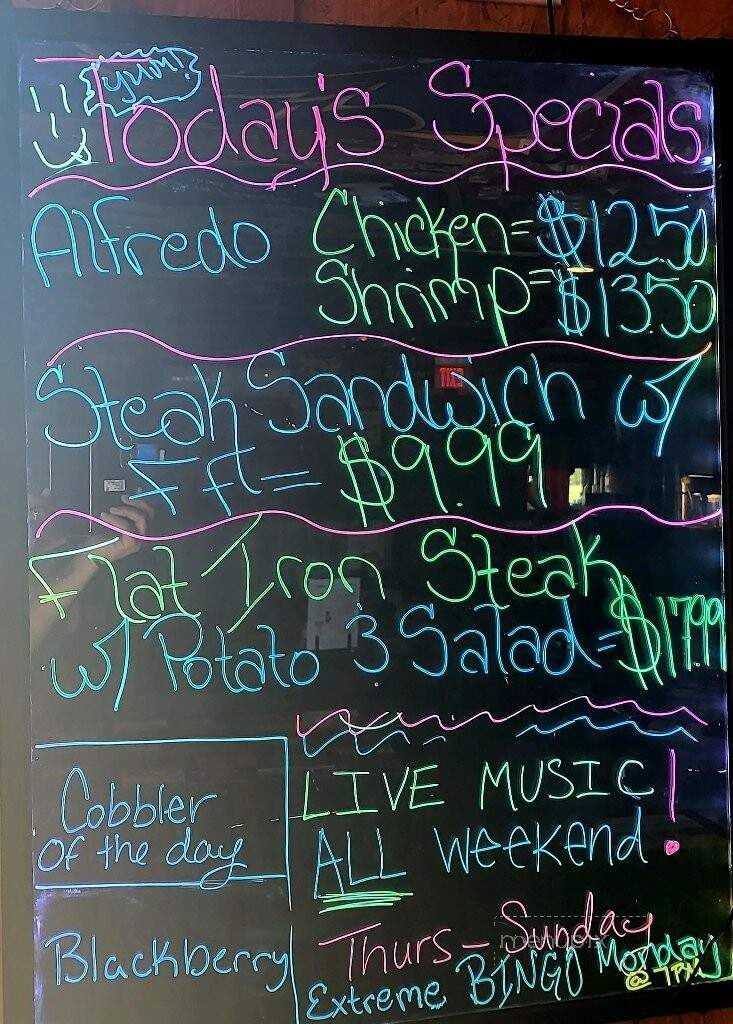 yum!
Today's Specials
Alfredo Chicken=$12.50
Shrimp=$13.50
Steak Sandwich w/
FF = $9.99
Flat Iron Steak
w/ Potato & Salad=$17.99
Cobbler
of the day
Blackberry
LIVE MUSIC!
ALL weekend
Thurs - Sunday
Extreme BINGO Monday
@ 7PM
EXIT
menupix